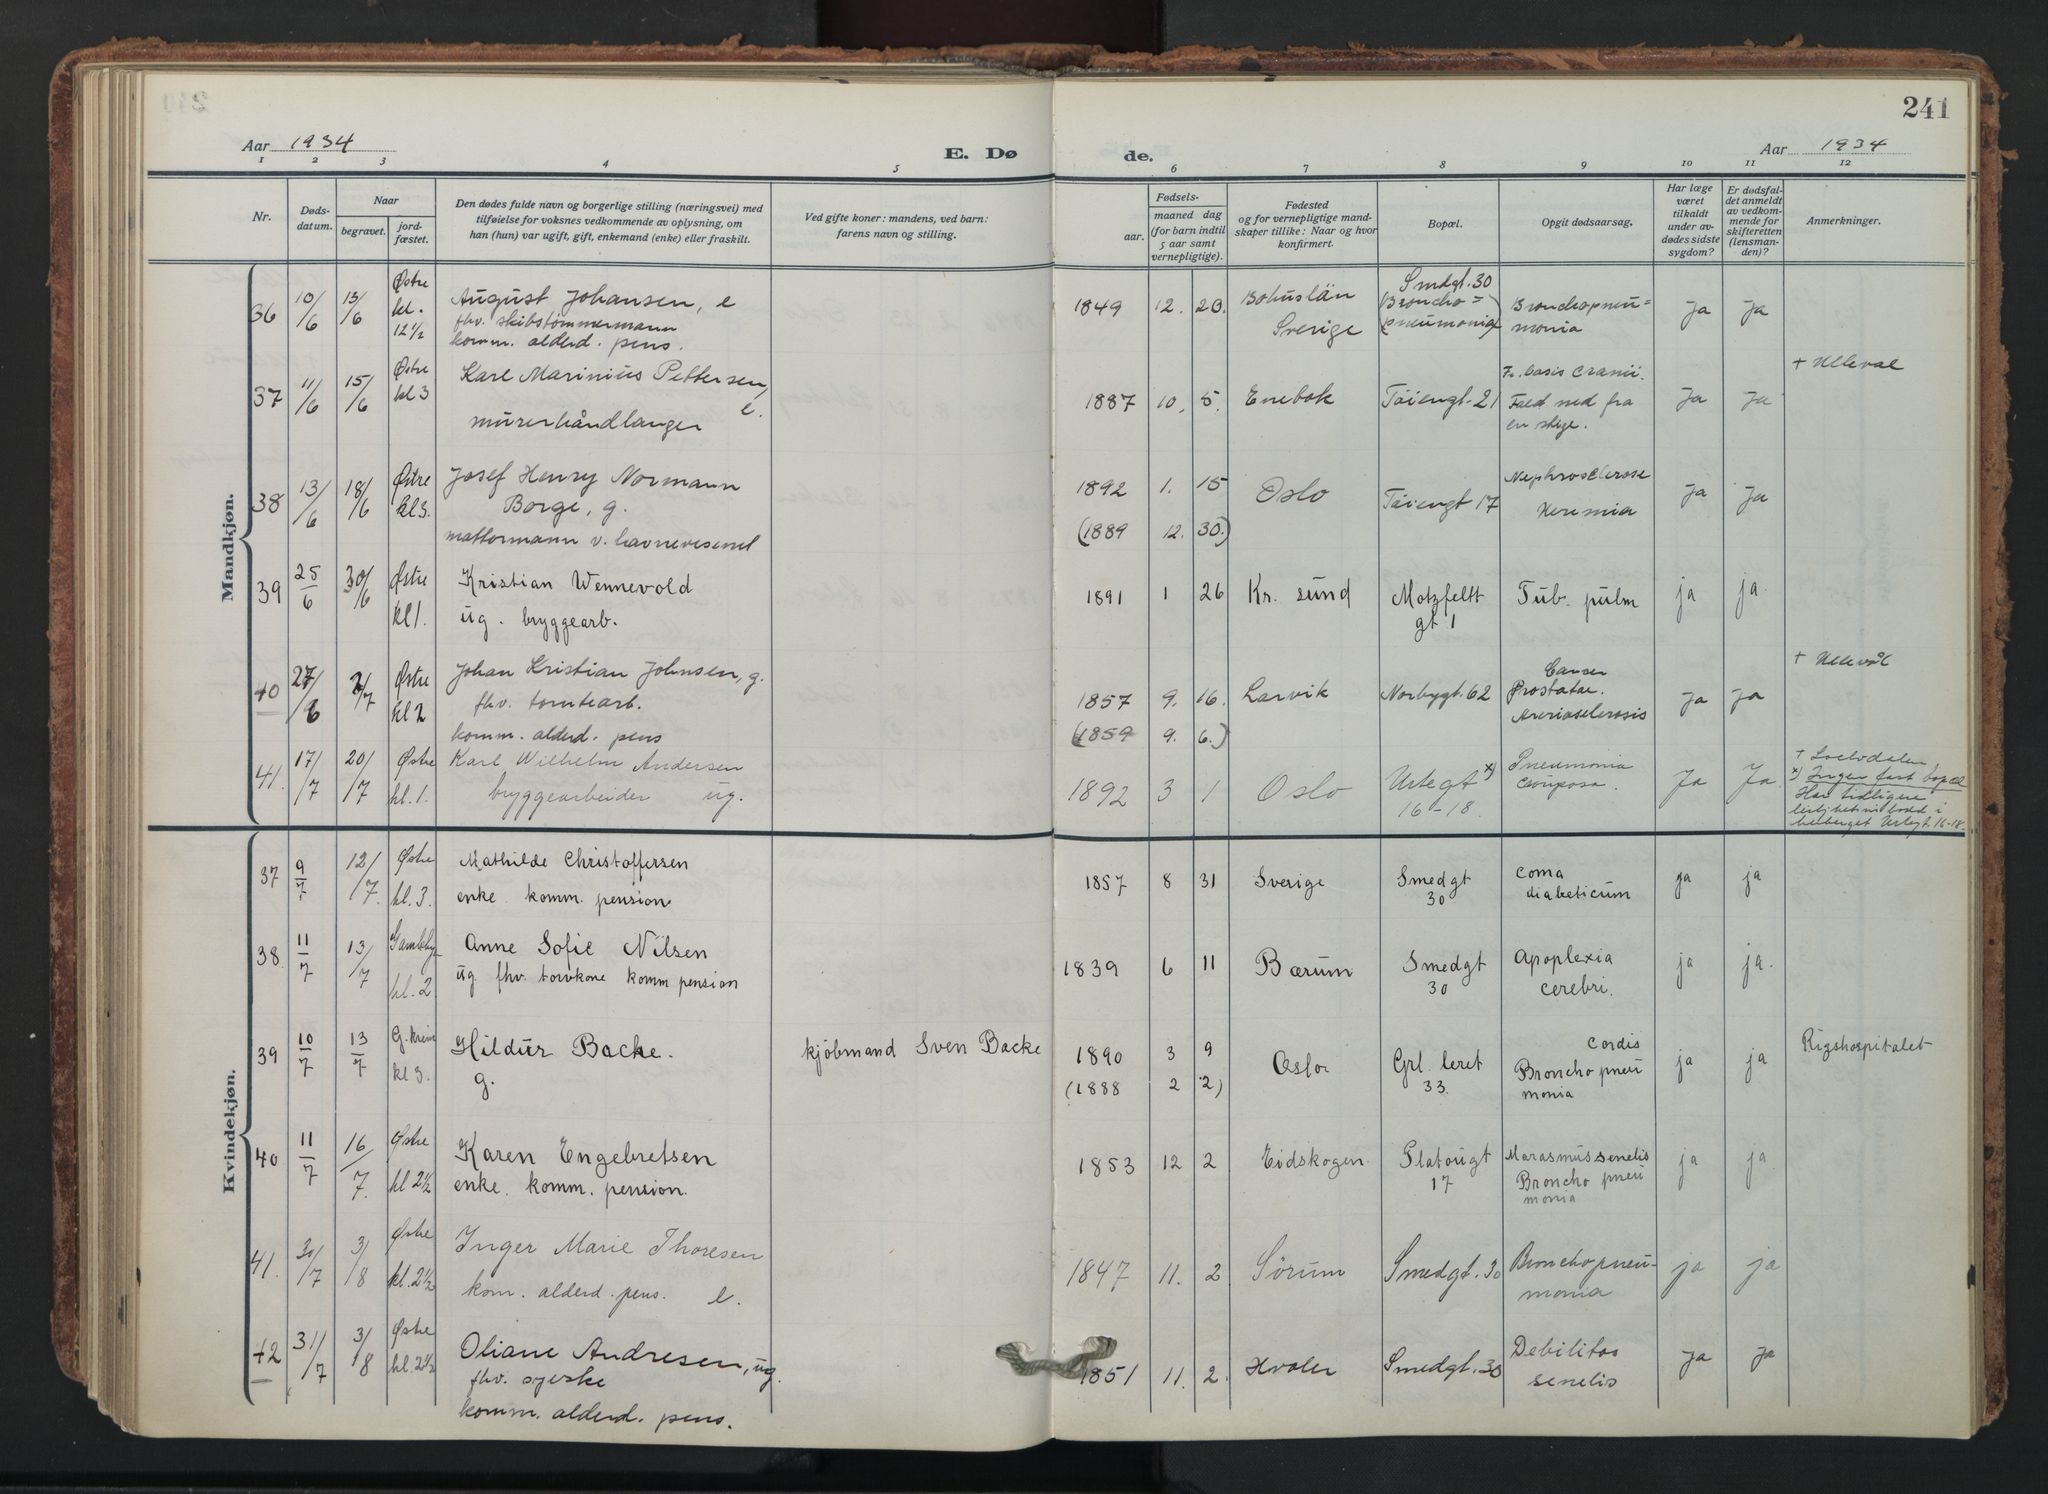 241
Aar 1934
E. Dø
de.
Aar 1934
1 2 3 4 5 6 7 8 9 10 11 12
Nr.
Døds-
datum.
Naar
begravet.
jord-
fæstet.
Den dødes fulde navn og borgerlige stilling (næringsvei) med
tilføielse for voksnes vedkommende av oplysning, om
han (hun) var ugift, gift, enkemand (enke) eller fraskilt.
Ved gifte koner: mandens, ved barn:
farens navn og stilling.
Fødsels-
aar.
maaned dag
(for barn indtil
5 aar samt
vernepligtige).
Fødested
og for vernepligtige mand-
skaper tillike: Naar og hvor
konfirmert.
Bopæl.
Opgit dødsaarsag.
Har læge
været
tilkaldt
under av-
dødes sidste
sygdom?
Er dødsfal-
det anmeldt
av vedkom-
mende for
skifteretten
(lensman-
den)?
Anmerkninger.
Mandkjøn.
36 10/6 13/6 Østre kl. 12 1/2
August Johansen, e
fhv. skibstømmermann
komm. alderd. pens.
1849 12. 20. Bohuslän Sverige
Smedgt. 30
(Broncho=
pneumonia)
Bronchopneu=
monia
Ja Ja
37 11/6 15/6 Østre kl 3
Karl Marinius Pettersen,
e.
murerhåndlanger
1887 10. 5. Enebak Töiengt. 21
Fr. basis cranii.
Fald ned fra
en stige.
Ja Ja
+ Ulleval
38 13/6 18/6 Østre kl 3.
Josef Henry Normann
Borge, g.
mattormann v. havnevesenet
1892 1. 15
(1889 12. 30.)
Oslo Töiengt 17
Nephrosclerose
Uremia
Ja Ja
39 25/6 30/6 Østre kl 1.
Kristian Wennevold
ug. bryggearb.
1891 1 26 Kr. sund
Motzfeldt
gt 1
Tub. pulm
ja ja.
40 27/6 2/7 Østre kl 2
Johan Kristian Johnsen, g.
fhv. tomtearb.
komm. alderd. pens
1857 9. 16.
(1859 9. 6.)
Larvik Norbygt. 62
Cancer
Prostatae.
Ja Ja
+ Ullevål
41. 17/7 20/7 Østre kl. 1.
Karl Wilhelm Andersen
bryggearbeider ug.
1892 3 1 Oslo
Urtegt x)
16-18.
Pneumonia
Ja Ja.
x) Ingen fast bopæl
Har tidligere
leilighetsvis bodd i
herberget Urtegt. 16-18.
Kvindekjøn.
37 9/7 12/7 Østre kl. 3.
Mathilde Christoffersen
enke komm. pension
1857 8 31 Sverige
Smedgt
30
coma
diabeticum
ja ja
38. 11/7 13/7 Gamleby kl. 2.
Anne Sofie Nilsen
ug. fhv. torvkone komm pension
1839 6 11 Bærum
Smedgt
30
Apoplexia
cerebri.
ja ja.
39 10/7 13/7 G. krem kl 3.
Hildur Backe.
g.
kjöbmand Sven Backe
1890 3 9
(1888 2 2)
Oslo
Grl. leret
33.
cordis
Broncho pneu
monia
ja ja
Rigshospitalet
40 11/7 16/7. Østre kl 2 1/2
Karen Engebretsen
enke. komm. pension.
1853 12 2 Eidskogen
Platougt
17
Marasmus senelis
Broncho pneu
monia
ja ja
41. 30/7 3/8 Østre kl. 2 1/2
Inger Marie Thoresen
kom. alderd. pens. e.
1847 11. 2 Sørum Smedgt. 30
Bronchopneu-
monia
ja ja
42 31/7 3/8 Østre kl. 2 1/2
Oliane Andresen, ug.
fhv. syerske
komm. alderd. pens.
1851 11. 2. Hvaler Smedgt. 30
Debilitas
senelis
Ja Ja